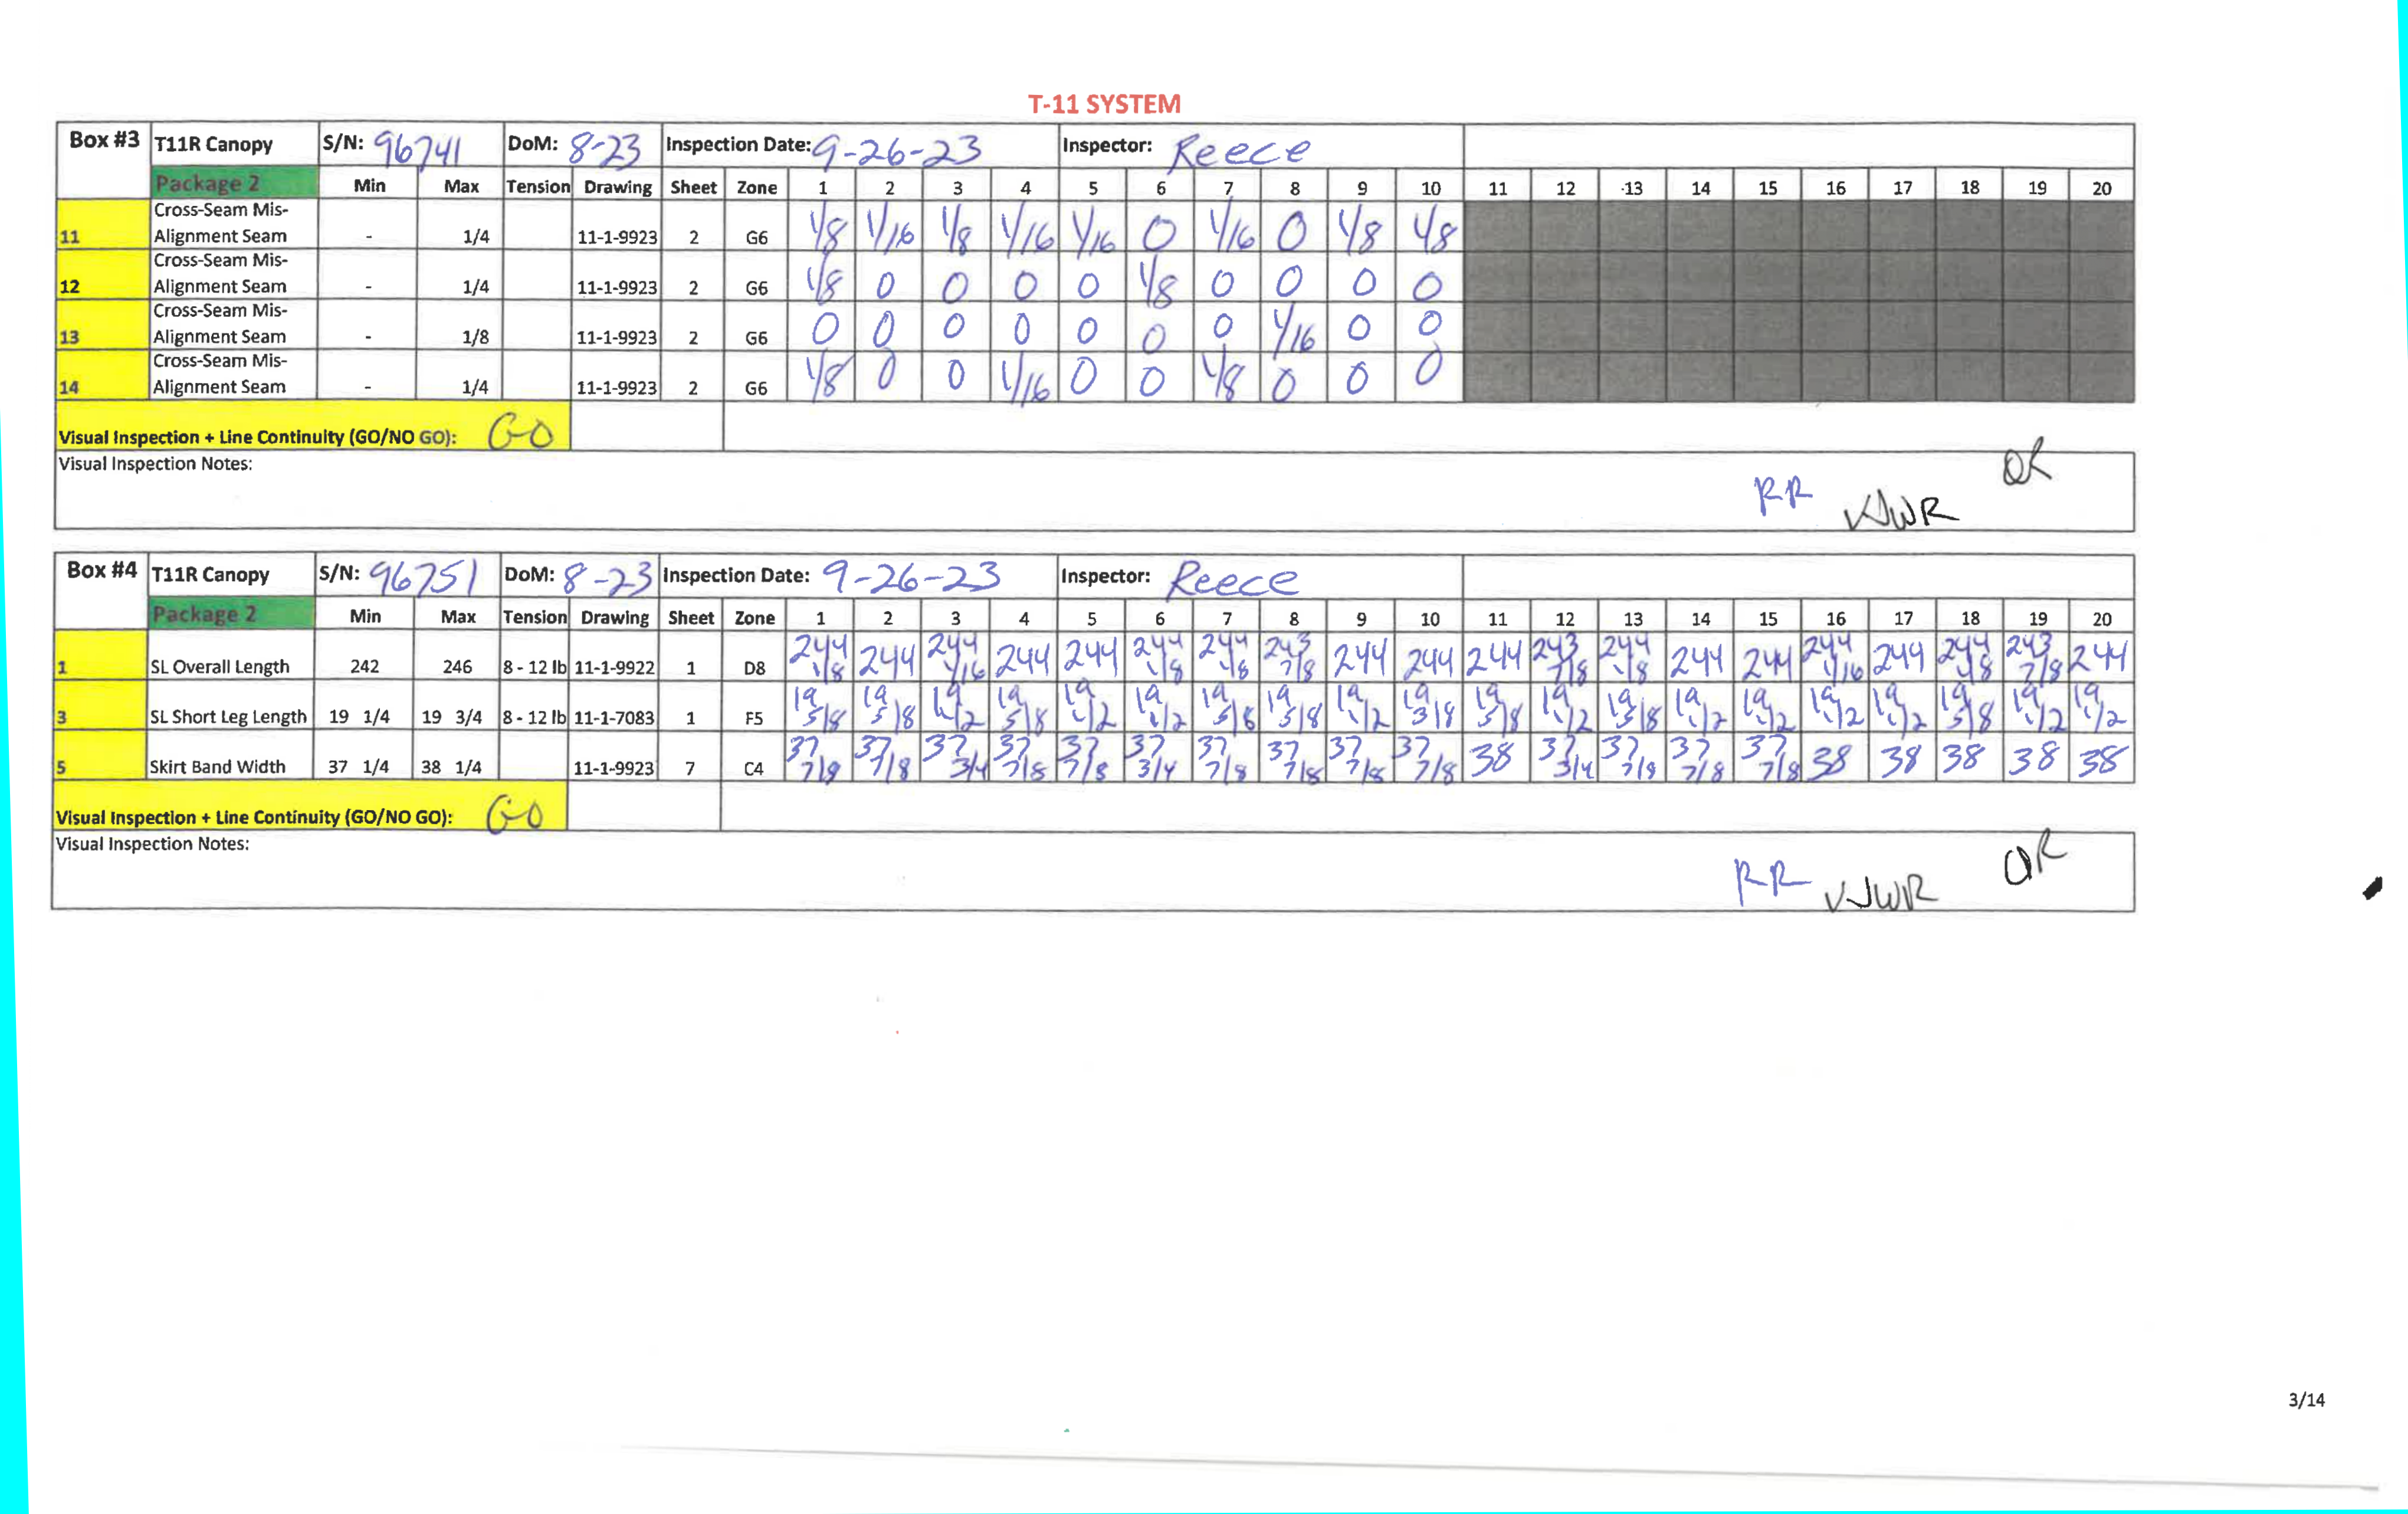 T-11 SYSTEM
Box #3 T11R Canopy S/N: 96741 DoM: 8-23 Inspection Date: 9-26-23 Inspector: Reece
Package 2 Min Max Tension Drawing Sheet Zone 1 2 3 4 5 6 7 8 9 10 11 12 13 14 15 16 17 18 19 20
Cross-Seam Mis-
11 Alignment Seam - 1/4 11-1-9923 2 G6 1/8 1/16 1/8 1/16 1/16 0 1/16 0 1/8 1/8
Cross-Seam Mis-
12 Alignment Seam - 1/4 11-1-9923 2 G6 1/8 0 0 0 0 1/8 0 0 0 0
Cross-Seam Mis-
13 Alignment Seam - 1/8 11-1-9923 2 G6 0 0 0 0 0 0 0 1/16 0 0
Cross-Seam Mis-
14 Alignment Seam - 1/4 11-1-9923 2 G6 1/8 0 0 1/16 0 0 1/8 0 0 0
Visual Inspection + Line Continuity (GO/NO GO): GO
Visual Inspection Notes:
RR KJWR QR
Box #4 T11R Canopy S/N: 96751 DoM: 8-23 Inspection Date: 9-26-23 Inspector: Reece
Package 2 Min Max Tension Drawing Sheet Zone 1 2 3 4 5 6 7 8 9 10 11 12 13 14 15 16 17 18 19 20
1 SL Overall Length 242 246 8 - 12 lb 11-1-9922 1 D8 244 1/8 244 244 1/16 244 244 244 1/8 244 1/8 243 7/8 244 244 244 243 7/8 244 1/8 244 244 244 1/16 244 244 1/8 243 7/8 244
3 SL Short Leg Length 19 1/4 19 3/4 8 - 12 lb 11-1-7083 1 F5 19 5/8 19 5/8 19 1/2 19 5/8 19 1/2 19 1/2 19 5/8 19 5/8 19 1/2 19 19 5/8 19 1/2 19 5/8 19 1/2 19 1/2 19 1/2 19 1/2 19 5/8 19 1/2 19 1/2
5 Skirt Band Width 37 1/4 38 1/4 11-1-9923 7 C4 37 7/8 37 7/8 37 3/4 37 7/8 37 7/8 37 3/4 37 7/8 37 7/8 37 7/8 37 7/8 38 37 3/4 37 7/8 37 7/8 37 7/8 38 38 38 38 38
Visual Inspection + Line Continuity (GO/NO GO): GO
Visual Inspection Notes:
RR KJWR QR
3/14